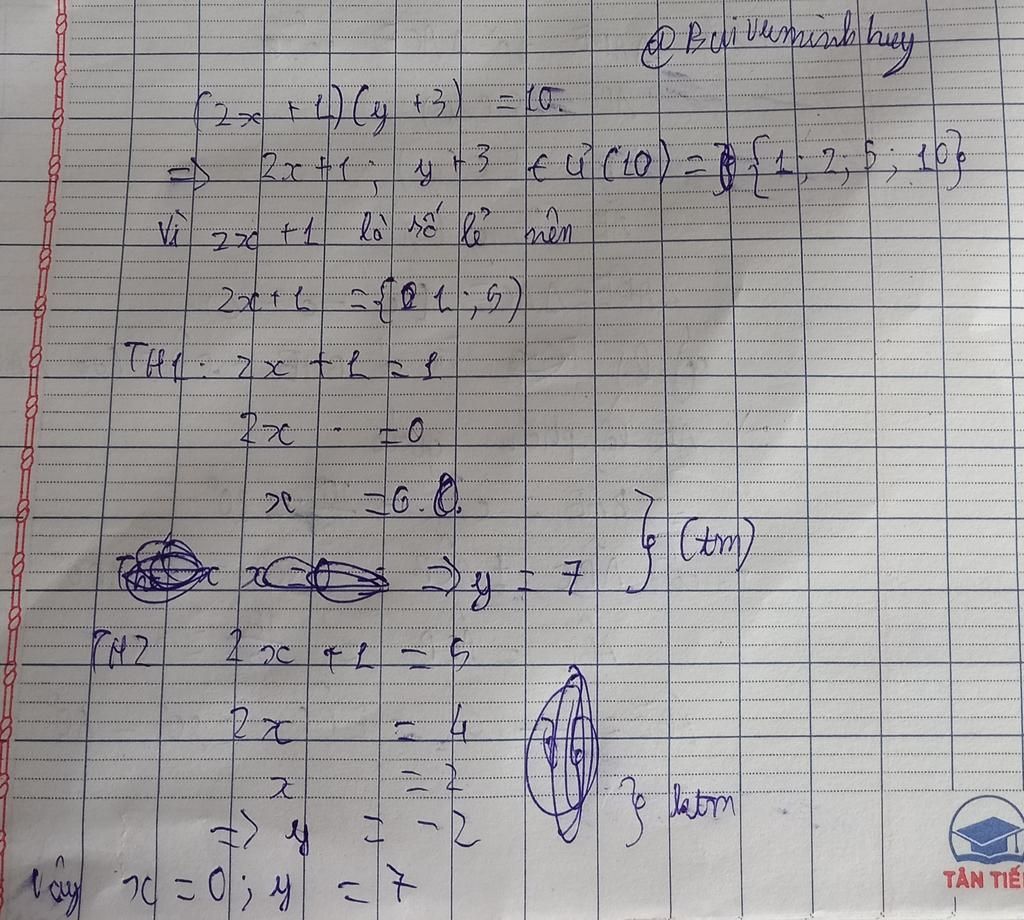 @Buivuminhhuy
(2x + 1)(y + 3) = 10.
=> 2x+1; y+3 ∈ Ư(10) = {1; 2; 5; 10}
Vì 2x +1 là số lẻ nên
2x+1 = {1; 5)
TH1: 2x + 1 = 1
2x = 0
x = 0.
=> y = 7 } (tm)
TH2 2x +1 = 5
2x = 4
x = 2
=> y = -2 } ktm
Vậy x = 0; y = 7
TÂN TIẾ